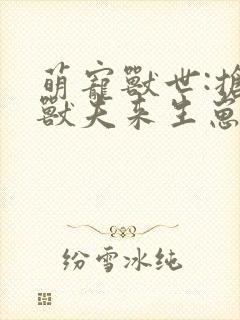 萌寵獸世:擒
獸夫來生崽
纷雪冰纯